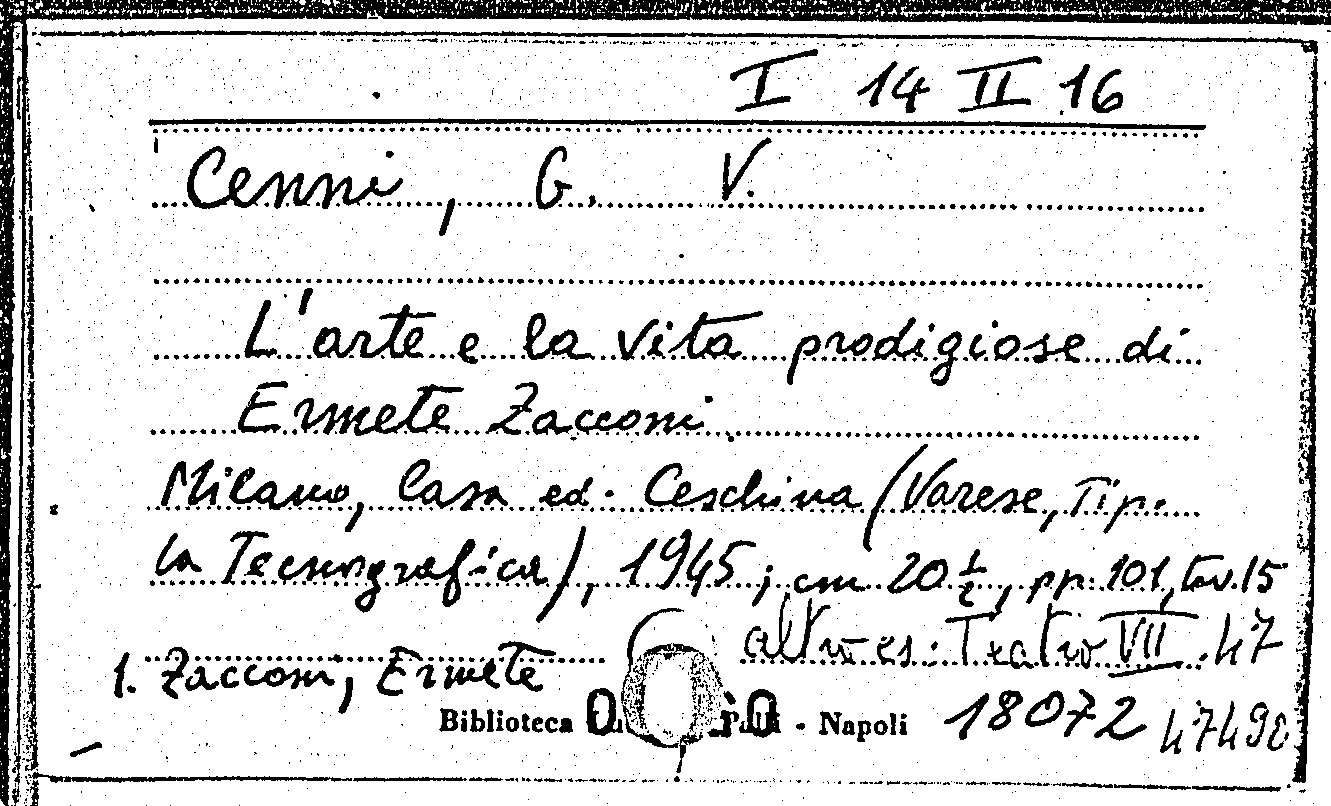 I 14 II 16
Cenni, G. V.
L'arte e la vita prodigiose di
Ermete Zacconi
Milano, Casa ed. Ceschina (Varese, Tip.
la Tecnografica), 1945; cm 20 1/2, pp. 101, tav. 15
altro es.: Teatro VII. 47
1. Zacconi, Ermete
Biblioteca - Napoli 18072